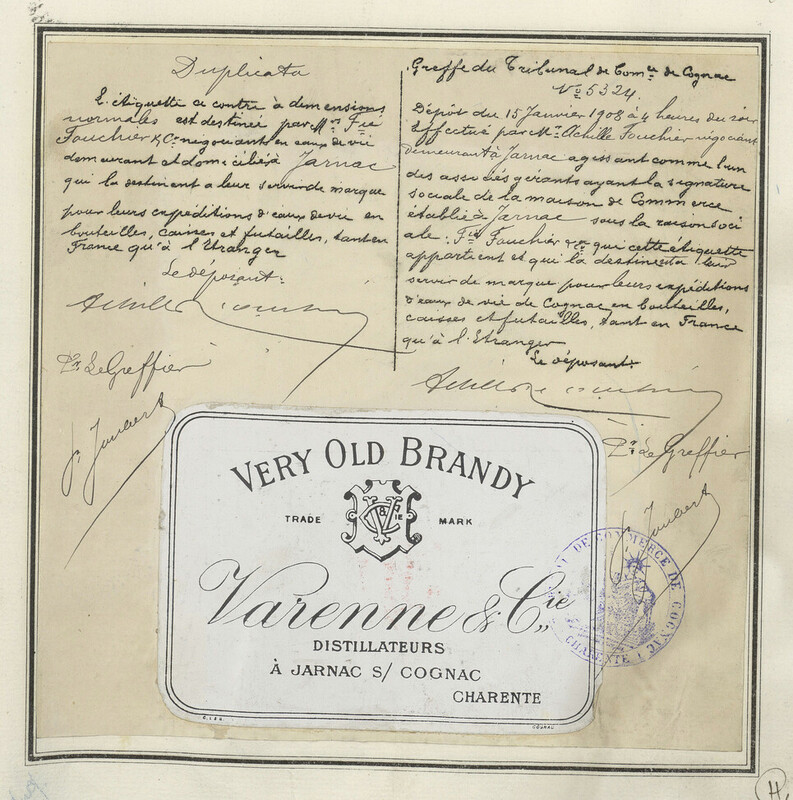 Duplicata
L'étiquette ci contre à dimensions
normales est destinée par Mrs Fié
Fouchier & Cie négociant en eaux de vie
demeurant et domicilié à Jarnac
qui la destinent a leur servir de marque
pour leurs expéditions d'eaux de vie en
bouteilles, caisses et futailles, tant en
France qu'à l'Etranger
Le déposant:
Achille Fouchier
Pr. Le Greffier
J. Joubert
Greffe du Tribunal de Comce de Cognac
No 5324
Dépôt du 15 Janvier 1908 à 4 heures du soir
Effectué par Mr. Achille Fouchier négociant
demeurant à Jarnac agissant comme l'un
des associés gérants ayant la signature
sociale de la maison de Commerce
établie à Jarnac sous la raison soci
ale: Fié Fouchier & Cie qui cette étiquette
appartient et qui la destinent a leur
servir de marque pour leurs expéditions
d'eaux de vie de Cognac en bouteilles,
caisses et futailles, tant en France
qu'à l'Etranger
Le déposant:
Achille Fouchier
Pr. Le Greffier
J. Joubert
VERY OLD BRANDY
TRADE MARK
V & Cie
Varenne & Cie
DISTILLATEURS
À JARNAC S/ COGNAC
CHARENTE
COGNAC
DE COMMERCE DE COGNAC
CHARENTE
H.